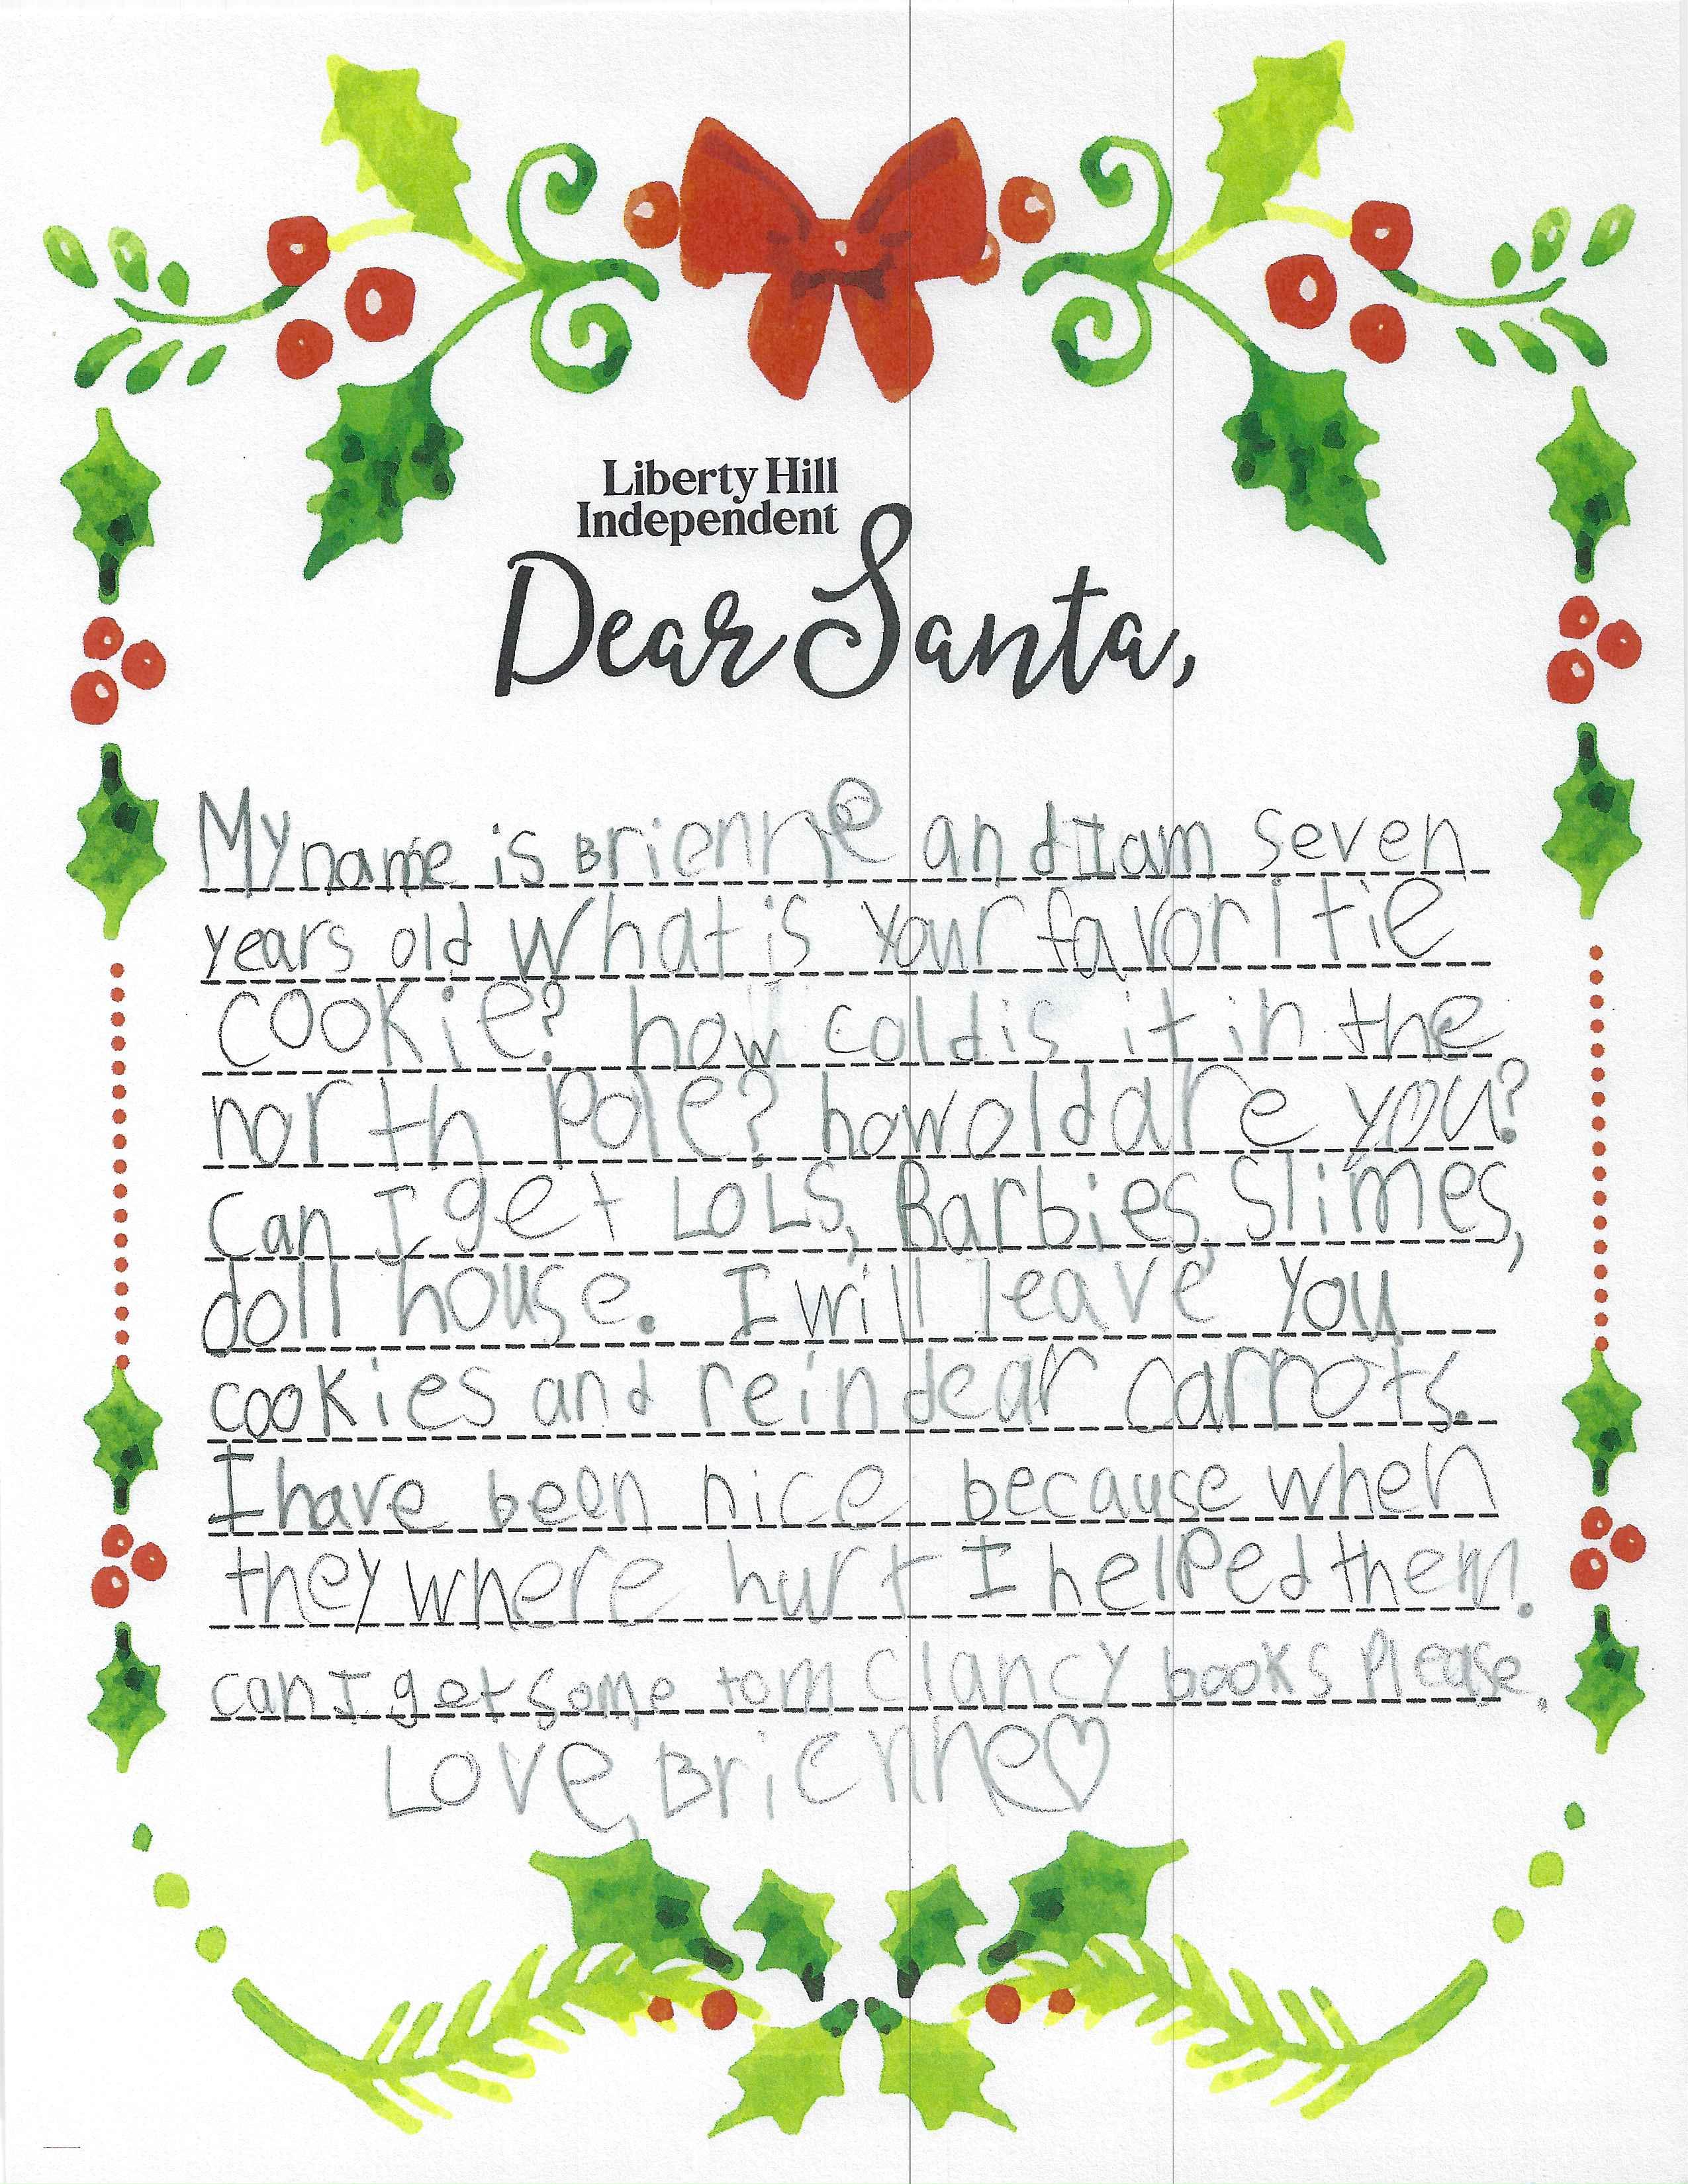 Liberty Hill
Independent
Dear Santa,
My name is Brienne and I am seven
years old What is your favoritie
cookie? how cold is it in the
north Pole? how old are you?
Can I get LOLS, Barbies, Slimes,
doll house. I will leave you
cookies and reindear carrots.
I have been nice because when
they where hurt I helped them.
can I get some tom Clancy books Please.
Love, Brienne♡